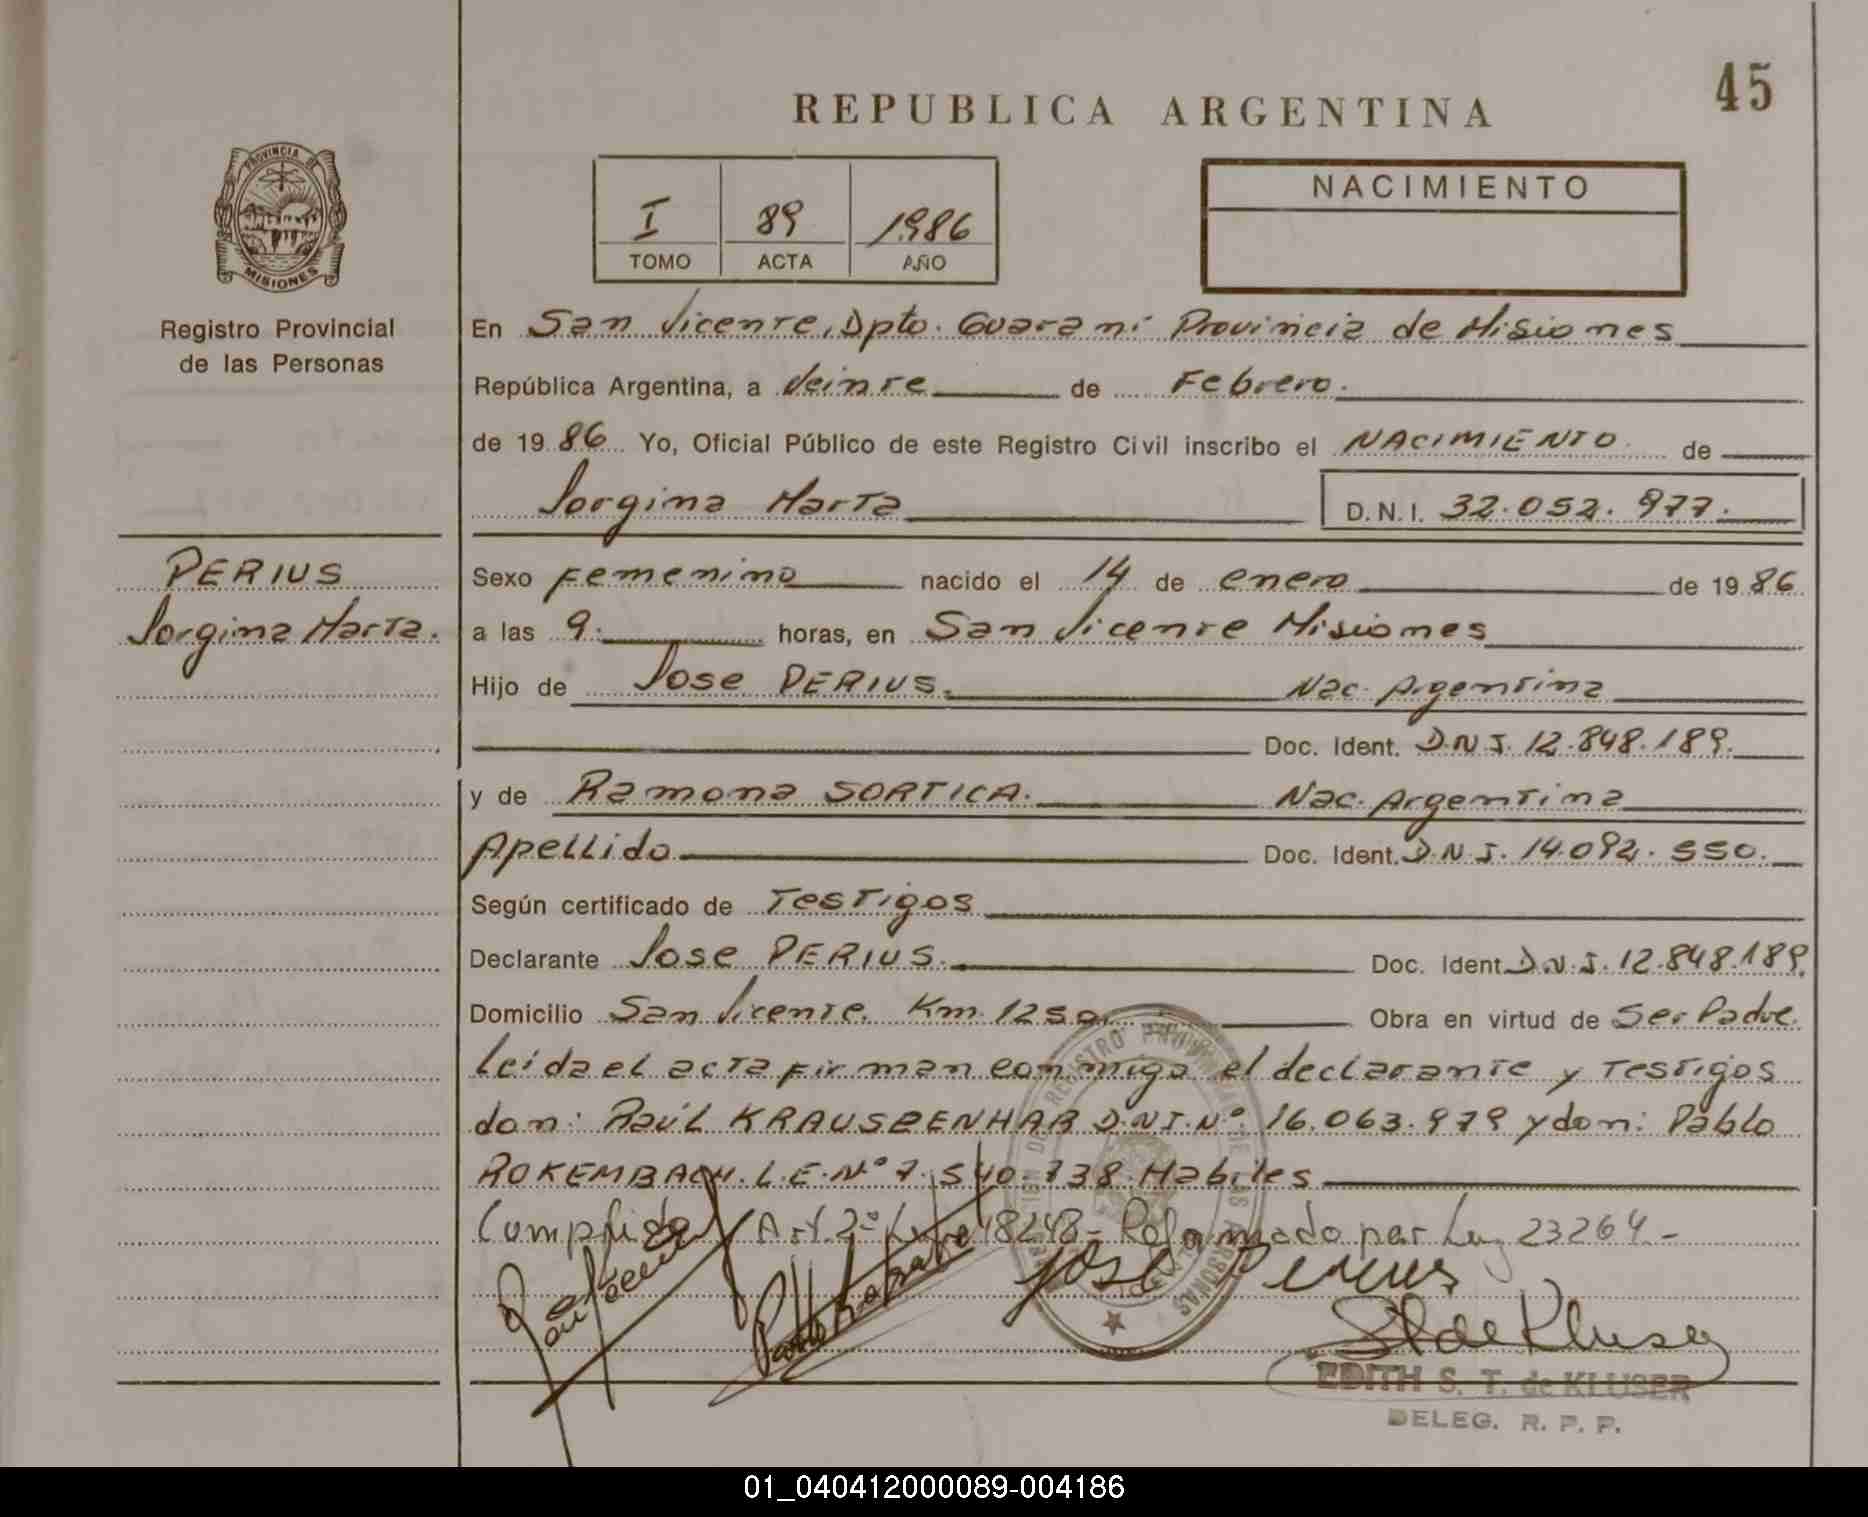 45
REPUBLICA ARGENTINA
PROVINCIA DE
MISIONES
Registro Provincial
de las Personas
I 89 1986
TOMO ACTA AÑO
NACIMIENTO
En San Vicente, Dpto. Guaraní Provincia de Misiones
República Argentina, a Veinte de Febrero.
de 19 86 Yo, Oficial Público de este Registro Civil inscribo el NACIMIENTO de
Jorgina Marta D.N.I. 32.052.977.
PERIUS
Jorgina Marta.
Sexo Femenino nacido el 14 de enero de 19 86
a las 9. horas, en San Vicente Misiones
Hijo de Jose PERIUS. Nac. Argentina
Doc. Ident. D.N.I. 12.848.189.
y de Ramona SORTICA. Nac. Argentina
Apellido Doc. Ident. D.N.I. 14.092.550.
Según certificado de Testigos
Declarante Jose PERIUS. Doc. Ident. D.N.I. 12.848.189.
Domicilio San Vicente. Km. 1250. Obra en virtud de Ser Padre.
Leida el acta firman conmigo el declarante y Testigos
don: Raúl KRAUSBENHAR D.N.I.Nº 16.063.979 y don: Pablo
ROKEMBACH. L.E.Nº 7.540.738. Habiles
Cumplido Art. 2º Ley 18248 - Reformado por Ley 23264 -
Jose Perius
S T de Kluser
EDITH S. T. de KLUSER
DELEG. R. P. P.
01_040412000089-004186